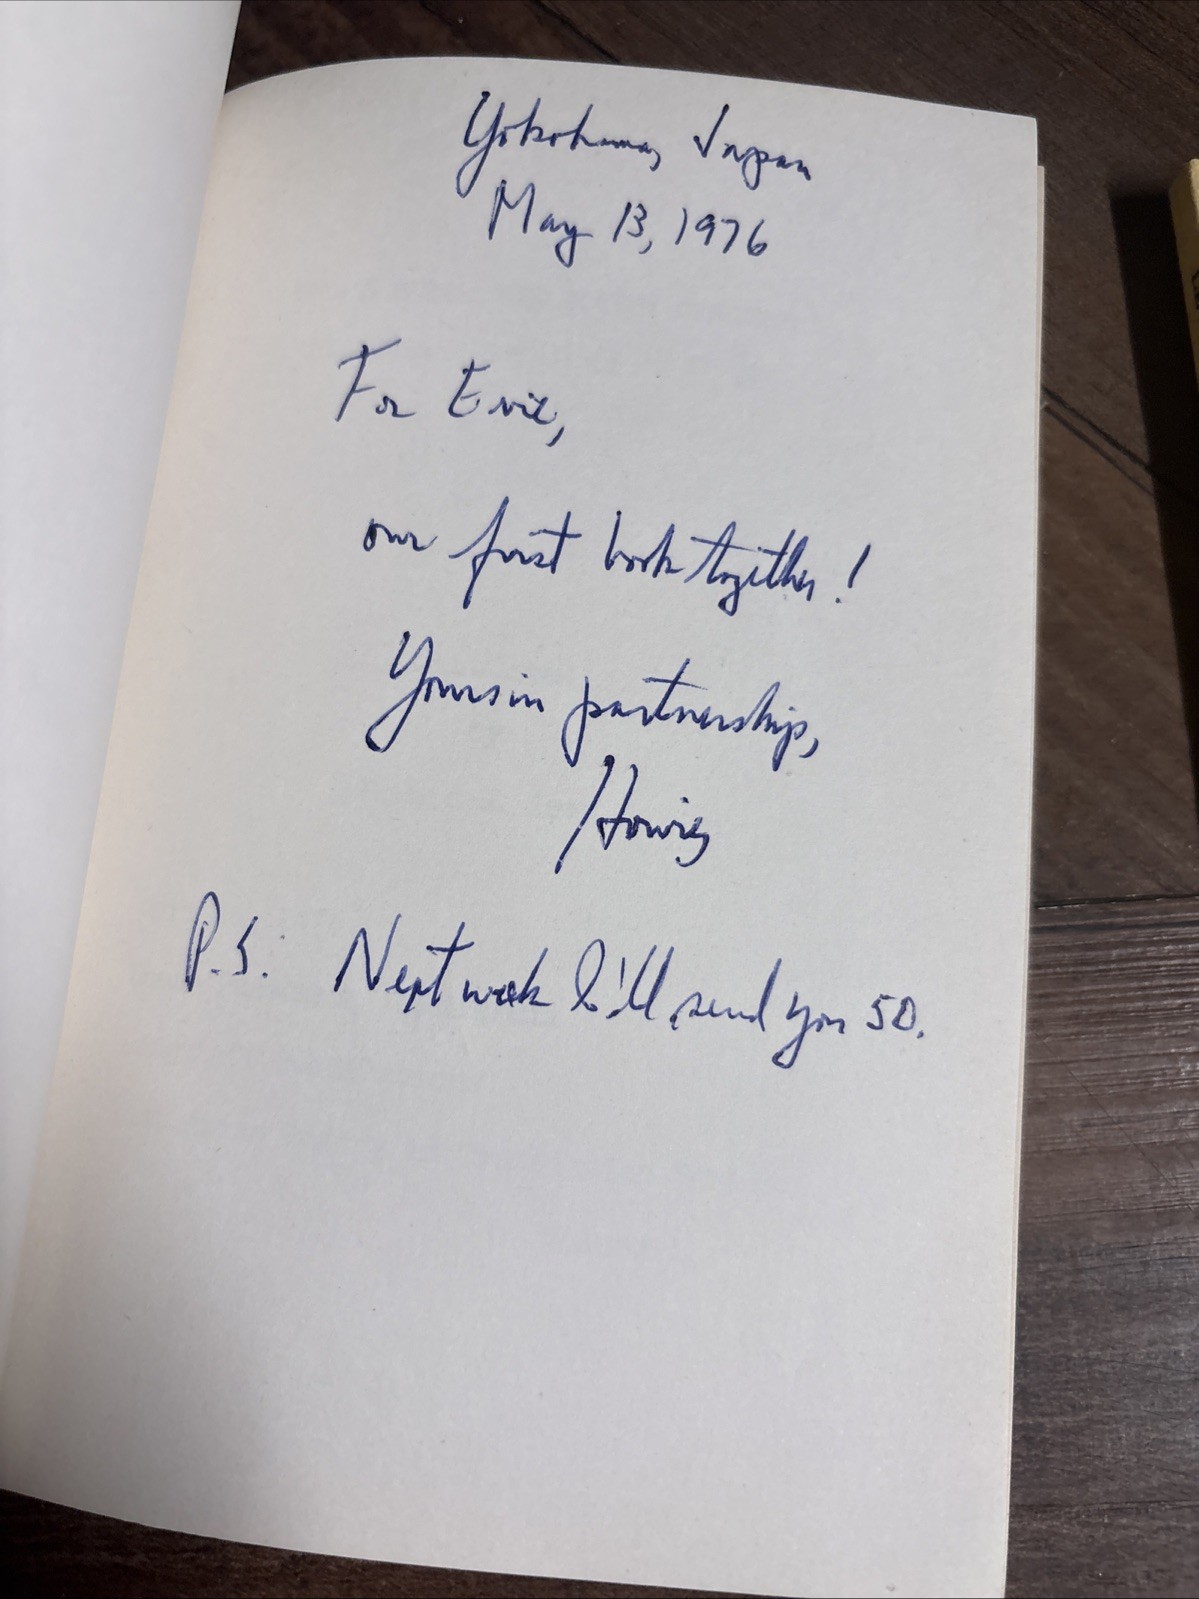 Yokohama, Japan
May 13, 1976
For Evie,
our first book together!
Yours in partnership,
Howie
P.S. Next week I'll send you 50.